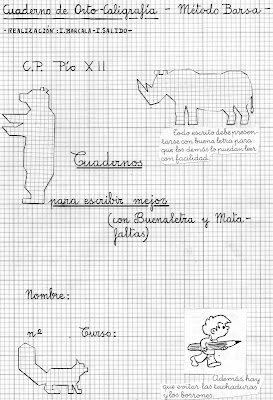 Cuaderno de Orto-Caligrafía - Método Barsa -
-REALIZACIÓN: I. MARCALA - I. SALIDO-
C.P. Pío XII
Todo escrito debe presen
tarse con buena letra para
que los demás lo puedan leer
con facilidad.
Cuadernos
para escribir mejor
(con Buenaletra y Mata-
faltas)
Nombre:
nº Curso:
Además hay
que evitar las tachaduras
y los borrones.